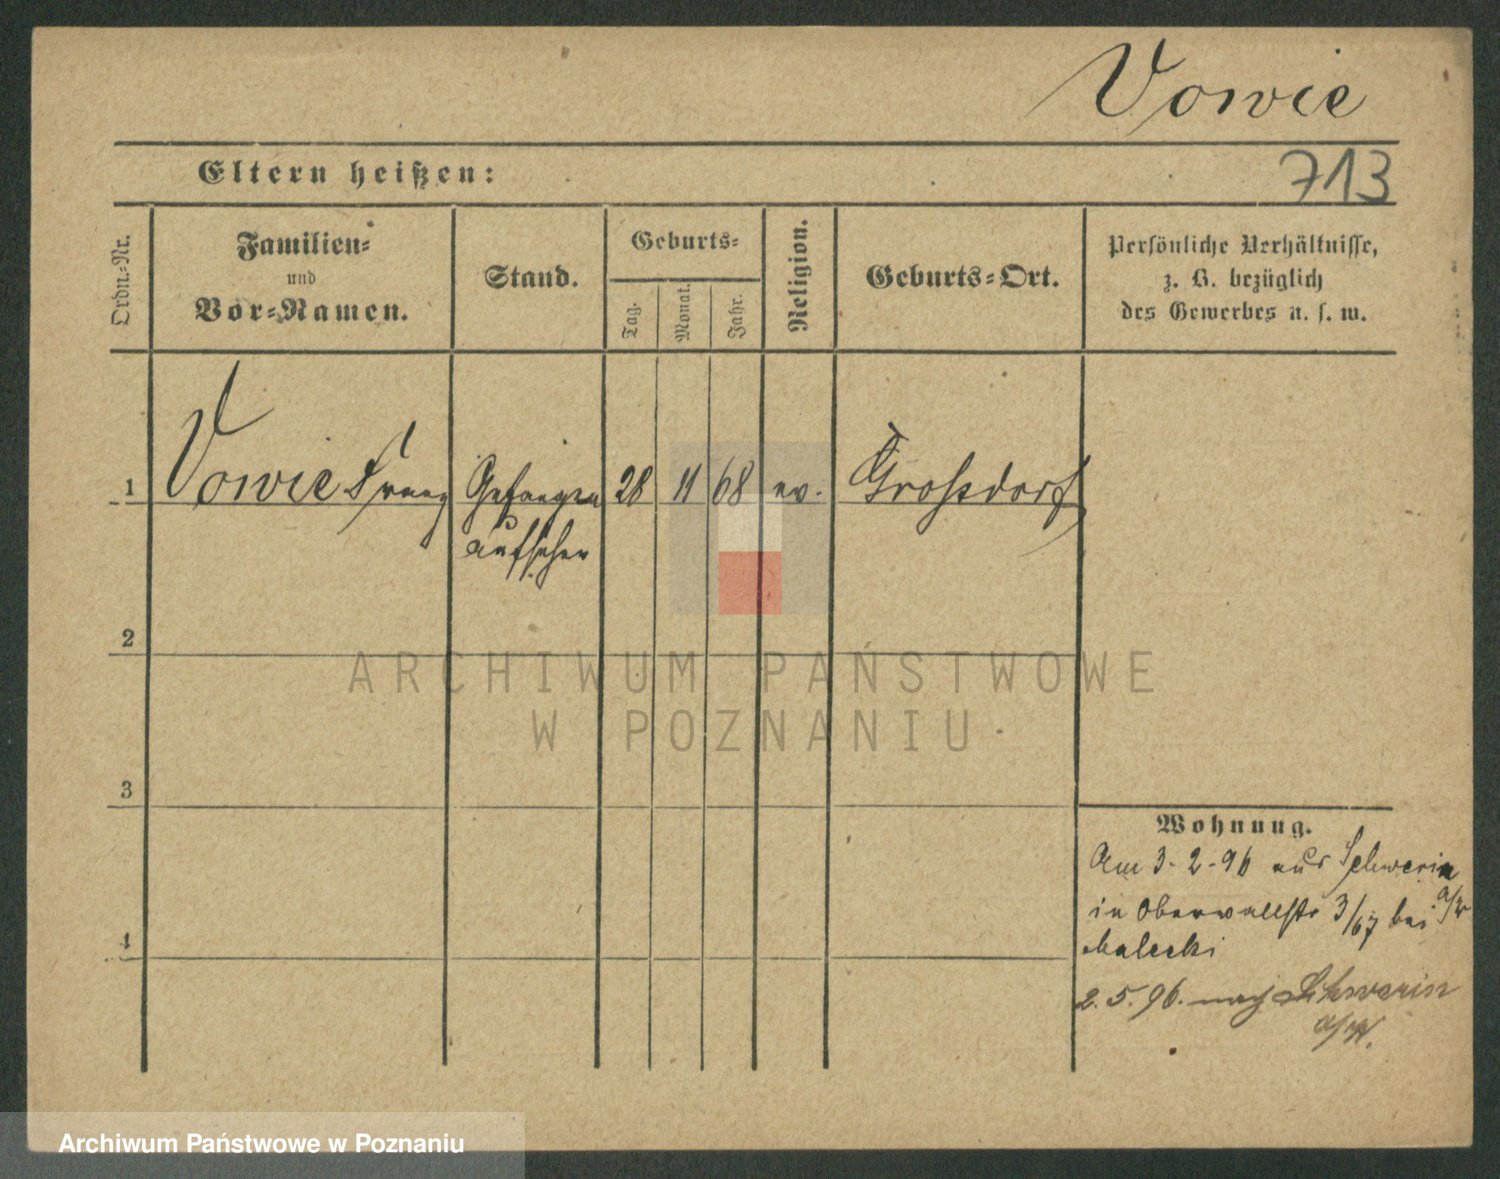 Vowie
Eltern heißen:
713
Ordn.=Nr.
Familien=
und
Vor=Namen.
Stand.
Geburts=
Tag.
Monat.
Jahr.
Religion.
Geburts=Ort.
Persönliche Verhältnisse,
z. B. bezüglich
des Gewerbes u. s. w.
1
Vowie Franz
Gefangen
aufseher
28
11
68
ev.
Großdorf
2
ARCHIWUM PAŃSTWOWE
W POZNANIU
3
4
Wohnung.
Am 3-2-96 aus Schwerin
a/W
in Oberwallstr 3/67 bei
Malecki
2.5.96. nach Schwerin
a/W.
Archiwum Państwowe w Poznaniu